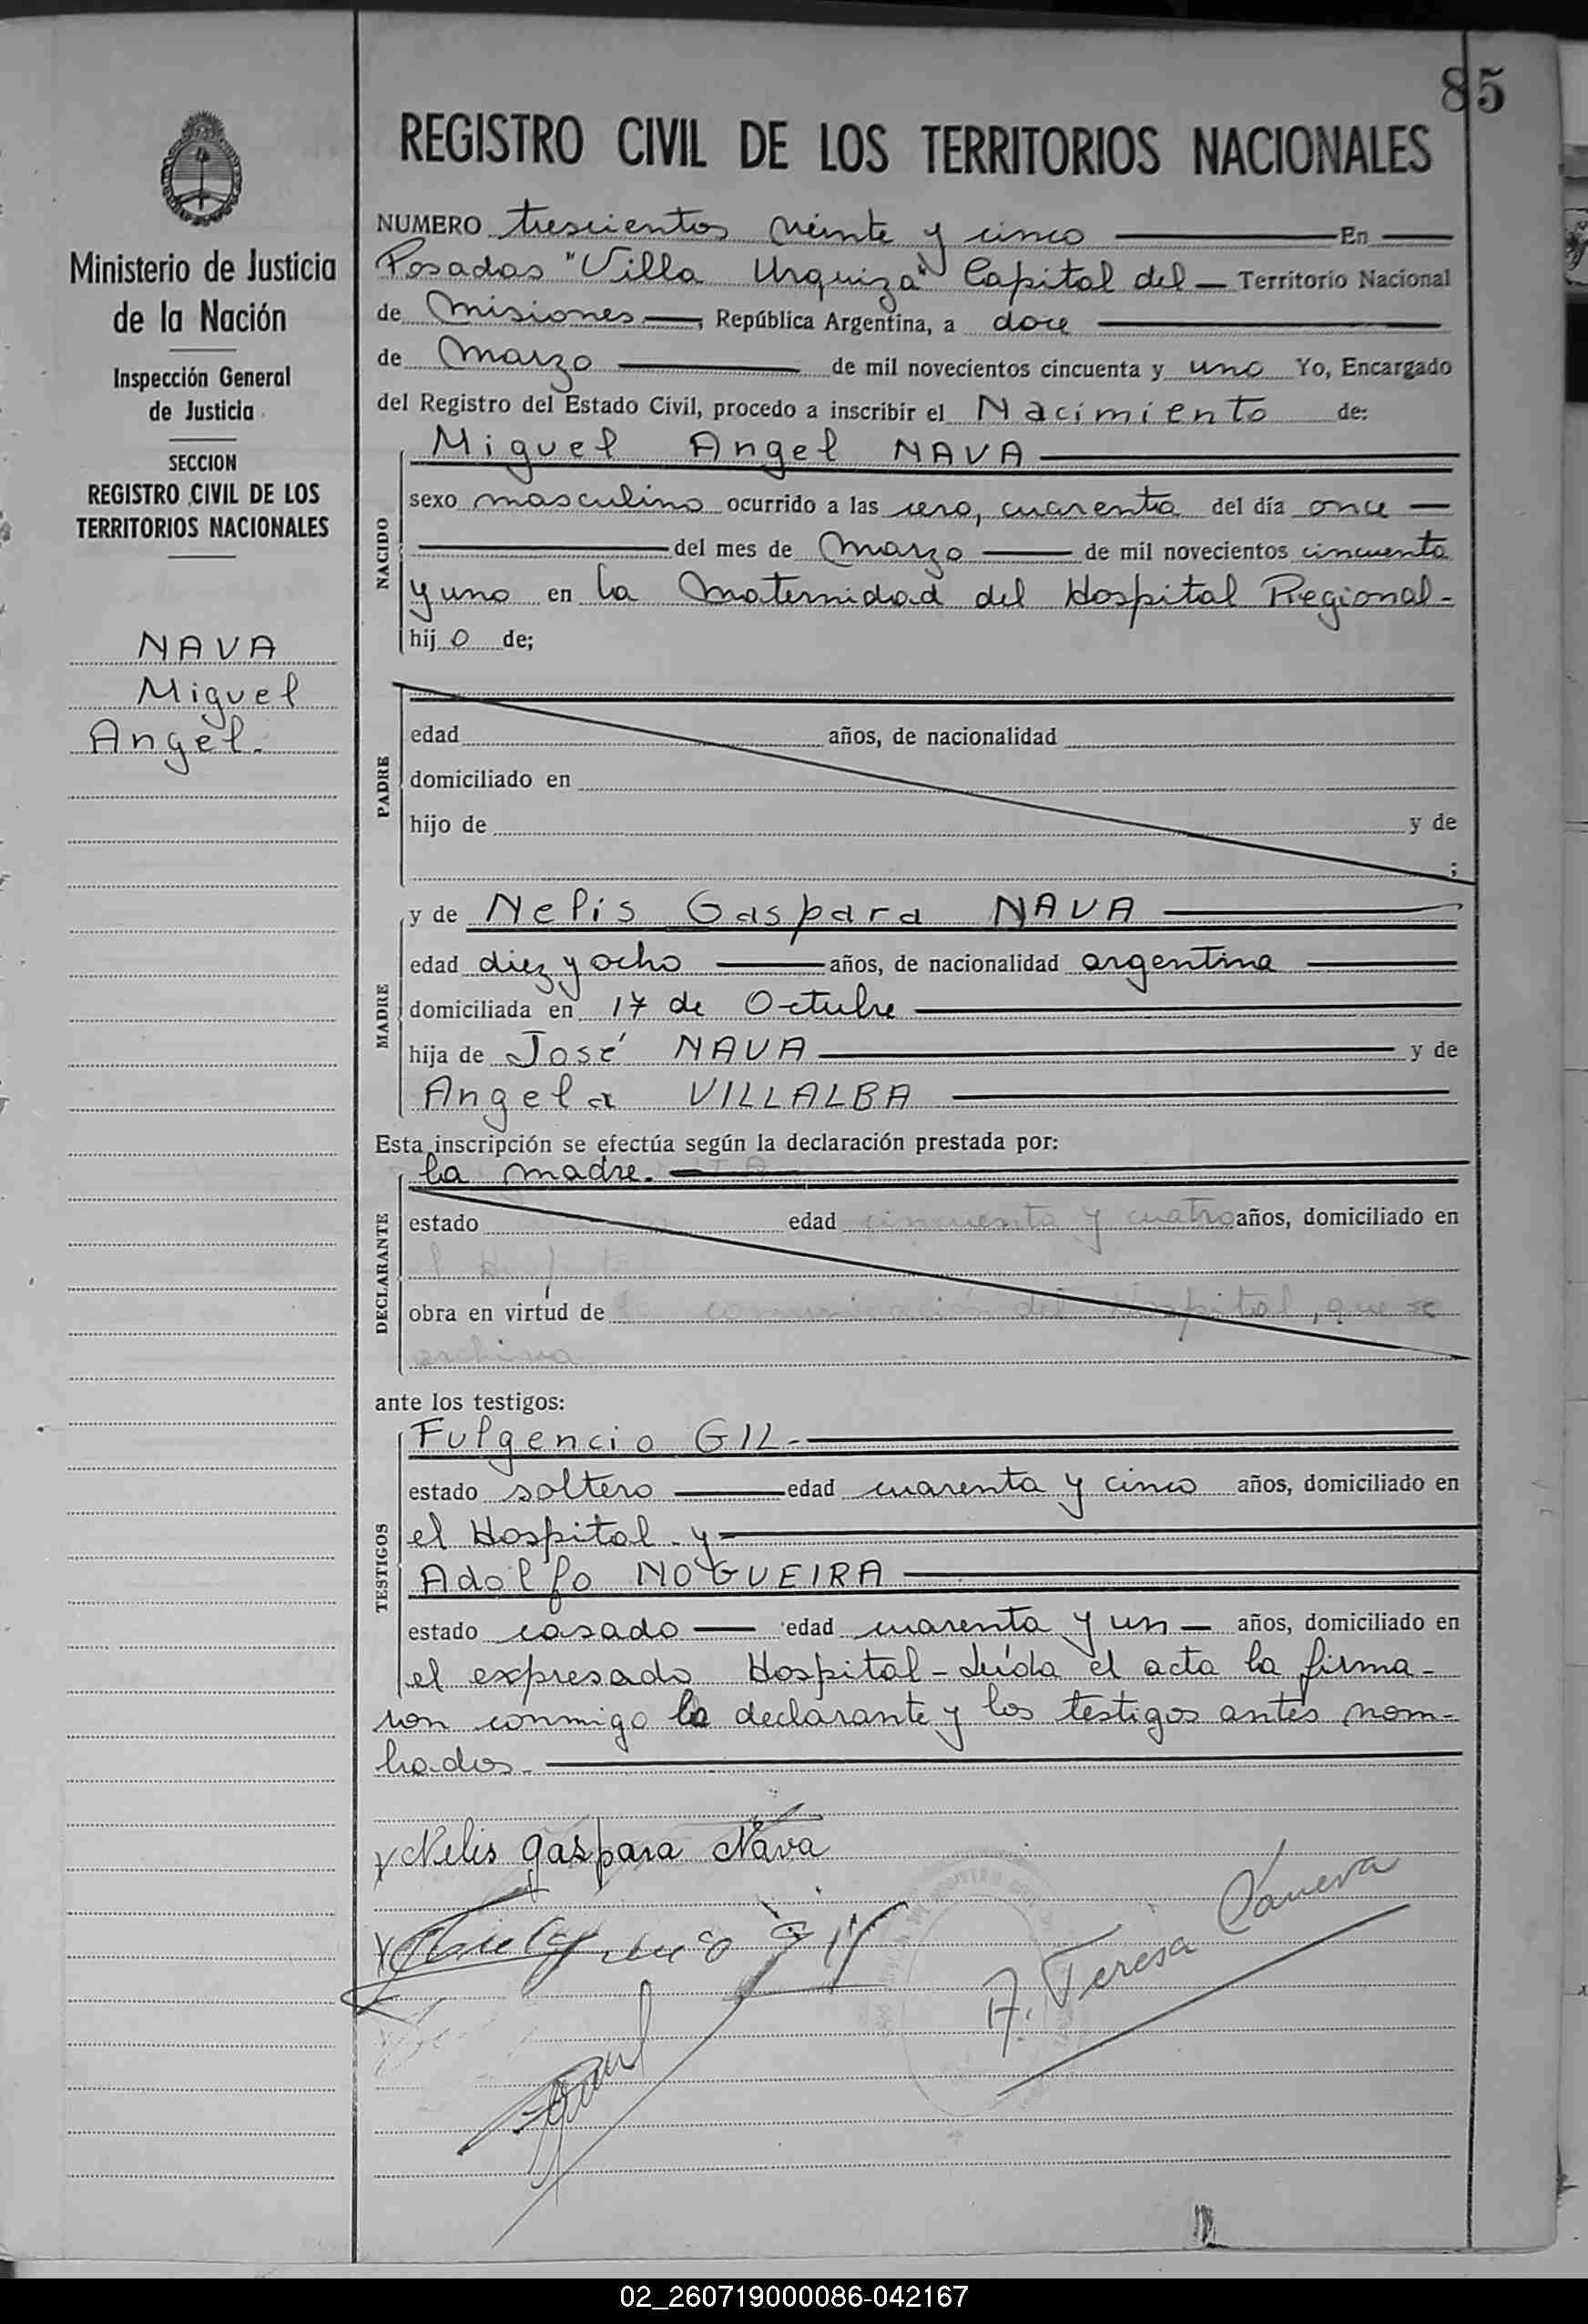 85
REGISTRO CIVIL DE LOS TERRITORIOS NACIONALES
Ministerio de Justicia
de la Nación
Inspección General
de Justicia
SECCION
REGISTRO CIVIL DE LOS
TERRITORIOS NACIONALES
NAVA
Miguel
Angel.
NUMERO trescientos veinte y cinco En
Posadas "Villa Urquiza" Capital del Territorio Nacional
de Misiones, República Argentina, a doce
de Marzo de mil novecientos cincuenta y uno Yo, Encargado
del Registro del Estado Civil, procedo a inscribir el Nacimiento de:
NACIDO
Miguel Angel NAVA
sexo masculino ocurrido a las cero, cuarenta del día once
del mes de Marzo de mil novecientos cincuenta
y uno en la Maternidad del Hospital Regional-
hijo de;
PADRE
edad años, de nacionalidad
domiciliado en
hijo de y de
;
MADRE
y de Nelis Gaspara NAVA
edad diez y ocho años, de nacionalidad argentina
domiciliada en 17 de Octubre
hija de José NAVA y de
Angela VILLALBA
Esta inscripción se efectúa según la declaración prestada por:
DECLARANTE
la madre.
estado edad cincuenta y cuatro años, domiciliado en
obra en virtud de la comunicación del Hospital, que se
archiva
ante los testigos:
TESTIGOS
Fulgencio GIL-
estado soltero edad cuarenta y cinco años, domiciliado en
el Hospital - y
Adolfo NOGUEIRA
estado casado edad cuarenta y un años, domiciliado en
el expresado Hospital - Leída el acta la firma-
ron conmigo la declarante y los testigos antes nom-
brados.
Nelis Gaspara Nava
A. Teresa
02_260719000086-042167